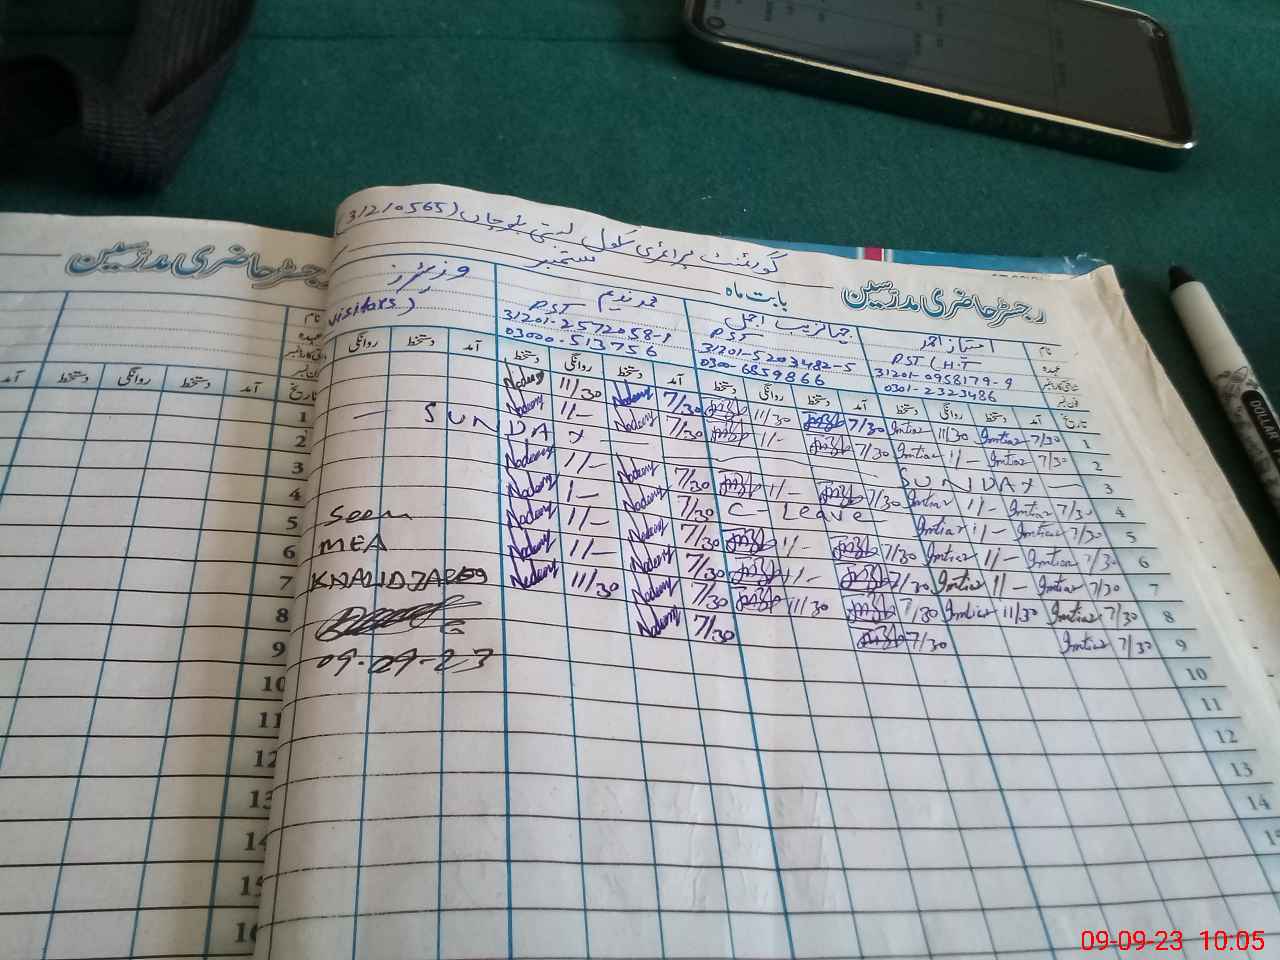 گورنمنٹ پرائمری سکول لدتی بلوچاں (31210565)
رجسٹر حاضری مدرسین
بابت ماہ ستمبر
رجسٹر حاضری مدرسین
نام
عہدہ
امتیاز احمد
PST (H.T
31201-0958179-9
0301-2323486
PST
31201-5203482-5
0300-6859866
محمد ندیم
PST
31201-2572058-1
03000.513756
وزیٹرز
visitors)
تاریخ آمد دستخط روانگی دستخط آمد دستخط روانگی دستخط آمد دستخط روانگی دستخط آمد دستخط روانگی
1 7/30 Imtiaz 11/30 Imtiaz 7/30 11/30 7/30 Nadeem 11/30 Nadeem
2 7/30 Imtiaz 11/- Imtiaz 7/30 11/- 7/30 Nadeem 11/- Nadeem
3 — SUNDAY — — SUNDAY —
4 7/30 Imtiaz 11/- Imtiaz 7/30 11/- 7/30 Nadeem 11/- Nadeem
5 7/30 Imtiaz 11/- Imtiaz C - Leave - 7/30 Nadeem 1/- Nadeem
6 7/30 Imtiaz 11/- Imtiaz 7/30 11/- 7/30 Nadeem 11/- Nadeem
7 7/30 Imtiaz 11/- Imtiaz 7/30 11/- 7/30 Nadeem 11/- Nadeem
8 7/30 Imtiaz 11/30 Imtiaz 7/30 11/30 7/30 Nadeem 11/30 Nadeem
9 7/30 Imtiaz 7/30 7/30 Nadeem
10
11
12
13
14
15
Seen
MEA
09-09-23
تاریخ آمد دستخط روانگی دستخط آمد
1
2
3
4
5
6
7
8
9
10
11
12
13
14
15
16
DOLLAR
09-09-23 10:05